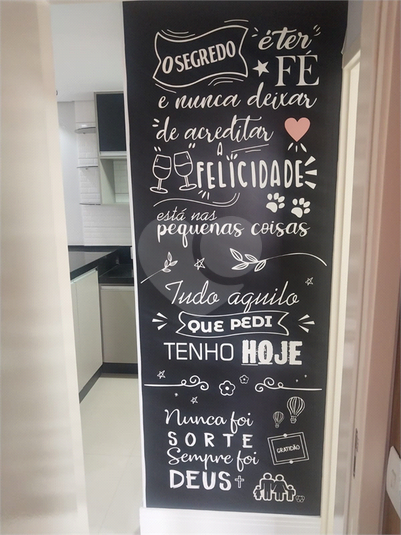 O SEGREDO
é ter
FÉ
e nunca deixar
de acreditar
A
FELICIDADE
está nas
pequenas coisas
Tudo aquilo
QUE PEDI
TENHO HOJE
Nunca foi
SORTE
Sempre foi
DEUS
GRATIDÃO